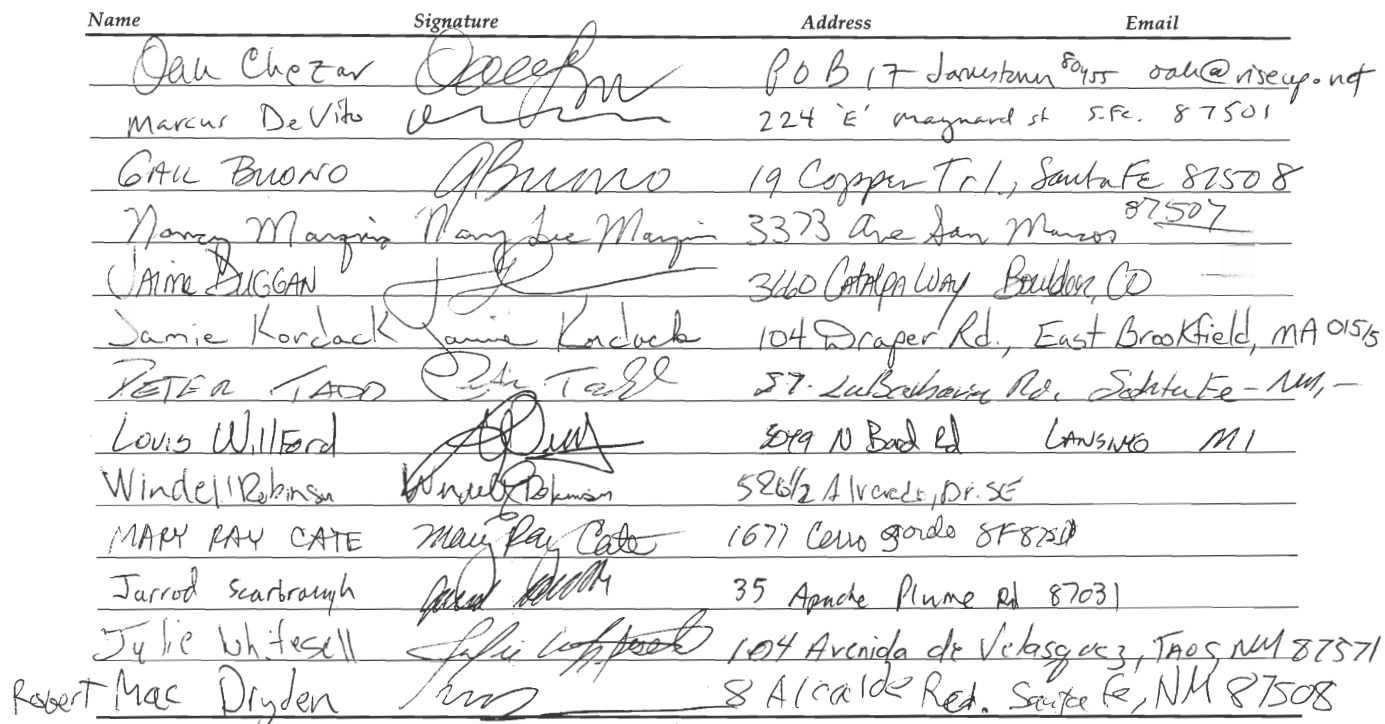 Name Signature Address Email
Oak Chezar P O B 17 Jamestown 80455 oak@riseup.net
Marcus DeVito 224 'E' Maynard st S.Fe. 87501
GAIL BUONO GBuono 19 Copper Trl., Santa Fe 87508
Nancy Marquis Nancy Lee Marquis 3373 Ave San Marcos 87507
JAIME DUGGAN 3660 CATALPA WAY Boulder, CO
Jamie Kordack Jamie Kordack 104 Draper Rd., East Brookfield, MA 01515
PETER TADD Peter Tadd 57 Rd. Santa Fe - NM, -
Louis Willford N Rd LANSING MI
Windell Robinson Windell Robinson 526 1/2 Alvarado, Dr. SE
MARY RAY CATE Mary Ray Cate 1677 Cerro gordo SF 87501
Jarrod Scarbrough 35 Apache Plume Rd 87031
Julie Whitesell Julie Whitesell 104 Avenida de Velasquez, TAOS NM 87571
Robert Mac Dryden 8 Alcalde Rd. Santa Fe, NM 87508